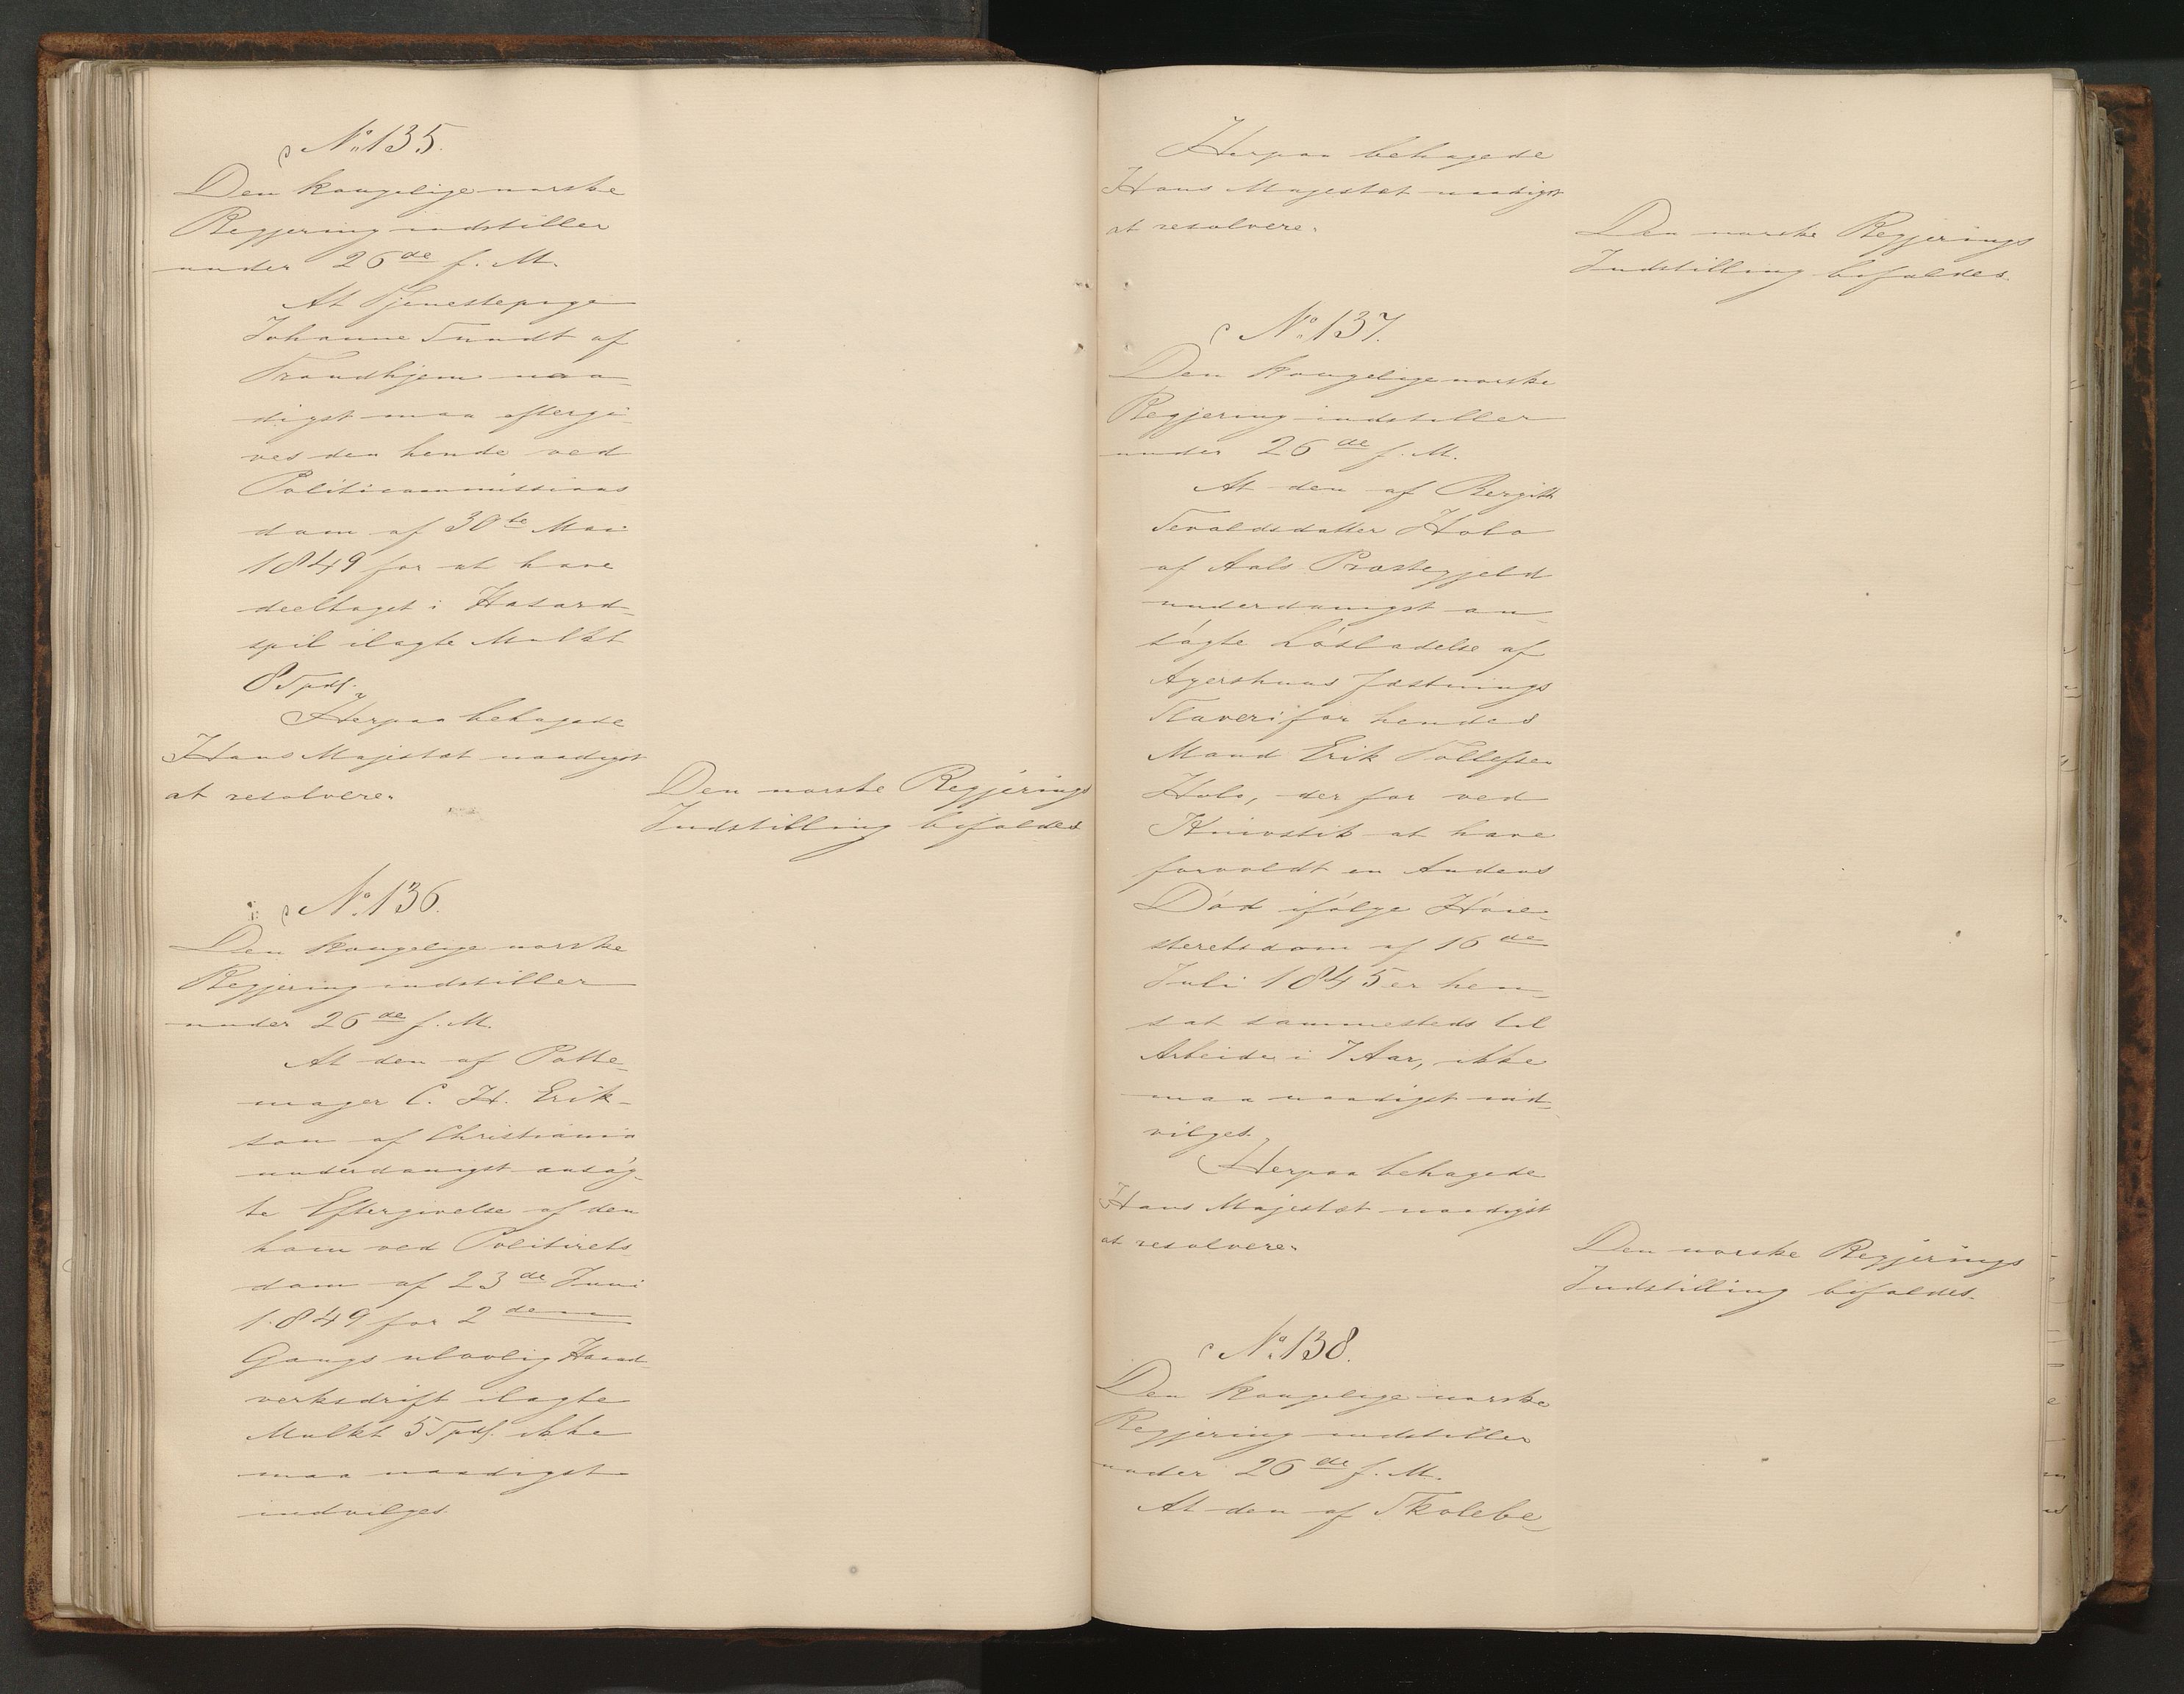 No. 135.
Den kongelige norske
Regjering indstiller
under 26de f. M.
At Tjenestepige
Johanne Tundt af
Trondhjem naa-
digst maa eftergi-
ves den hende ved
Politicommissions
dom af 30te Mai
1849 for at have
deeltaget i Hasard-
spil ilagte Mulkt
8 Spdl.
Herpaa behagede
Hans Majestæt naadigst
at resolvere:
Den norske Regjerings
Indstilling bifaldes
No. 136.
Den kongelige norske
Regjering indstiller
under 26de f. M.
At den af Potte-
mager C. H. Erik-
son af Christiania
underdanigst ansøg-
te Eftergivelse af den
ham ved Politirets
dom af 23de Juni
1849 for 2den
Gangs ulovlig Haand-
verksdrift ilagte
Mulkt 5 Spdl. ikke
maa naadigst
indvilges
Herpaa behagede
Hans Majestæt naadigst
at resolvere:
Den norske Regjerings
Indstilling bifaldes.
No. 137.
Den kongelige norske
Regjering indstiller
under 26de f. M.
At den af Bergith
Sevaldsdatter Holo
af Aals Præstegjeld
underdanigst an-
søgte Løsladelse af
Agershuus Fæstnings
Slaveri for hendes
Mand Erik Tollefsen
Holo, der for ved
Knivstik at have
forvoldt en Andens
Død ifølge Høie-
steretsdom af 16de
Juli 1845 er hen-
sat sammesteds til
Arbeide i 7 Aar, ikke
maa naadigst ind-
vilges.
Herpaa behagede
Hans Majestæt naadigst
at resolvere:
Den norske Regjerings
Indstilling bifaldes.
No. 138.
Den kongelige norske
Regjering indstiller
under 26de f. M.
At den af Skolebe-